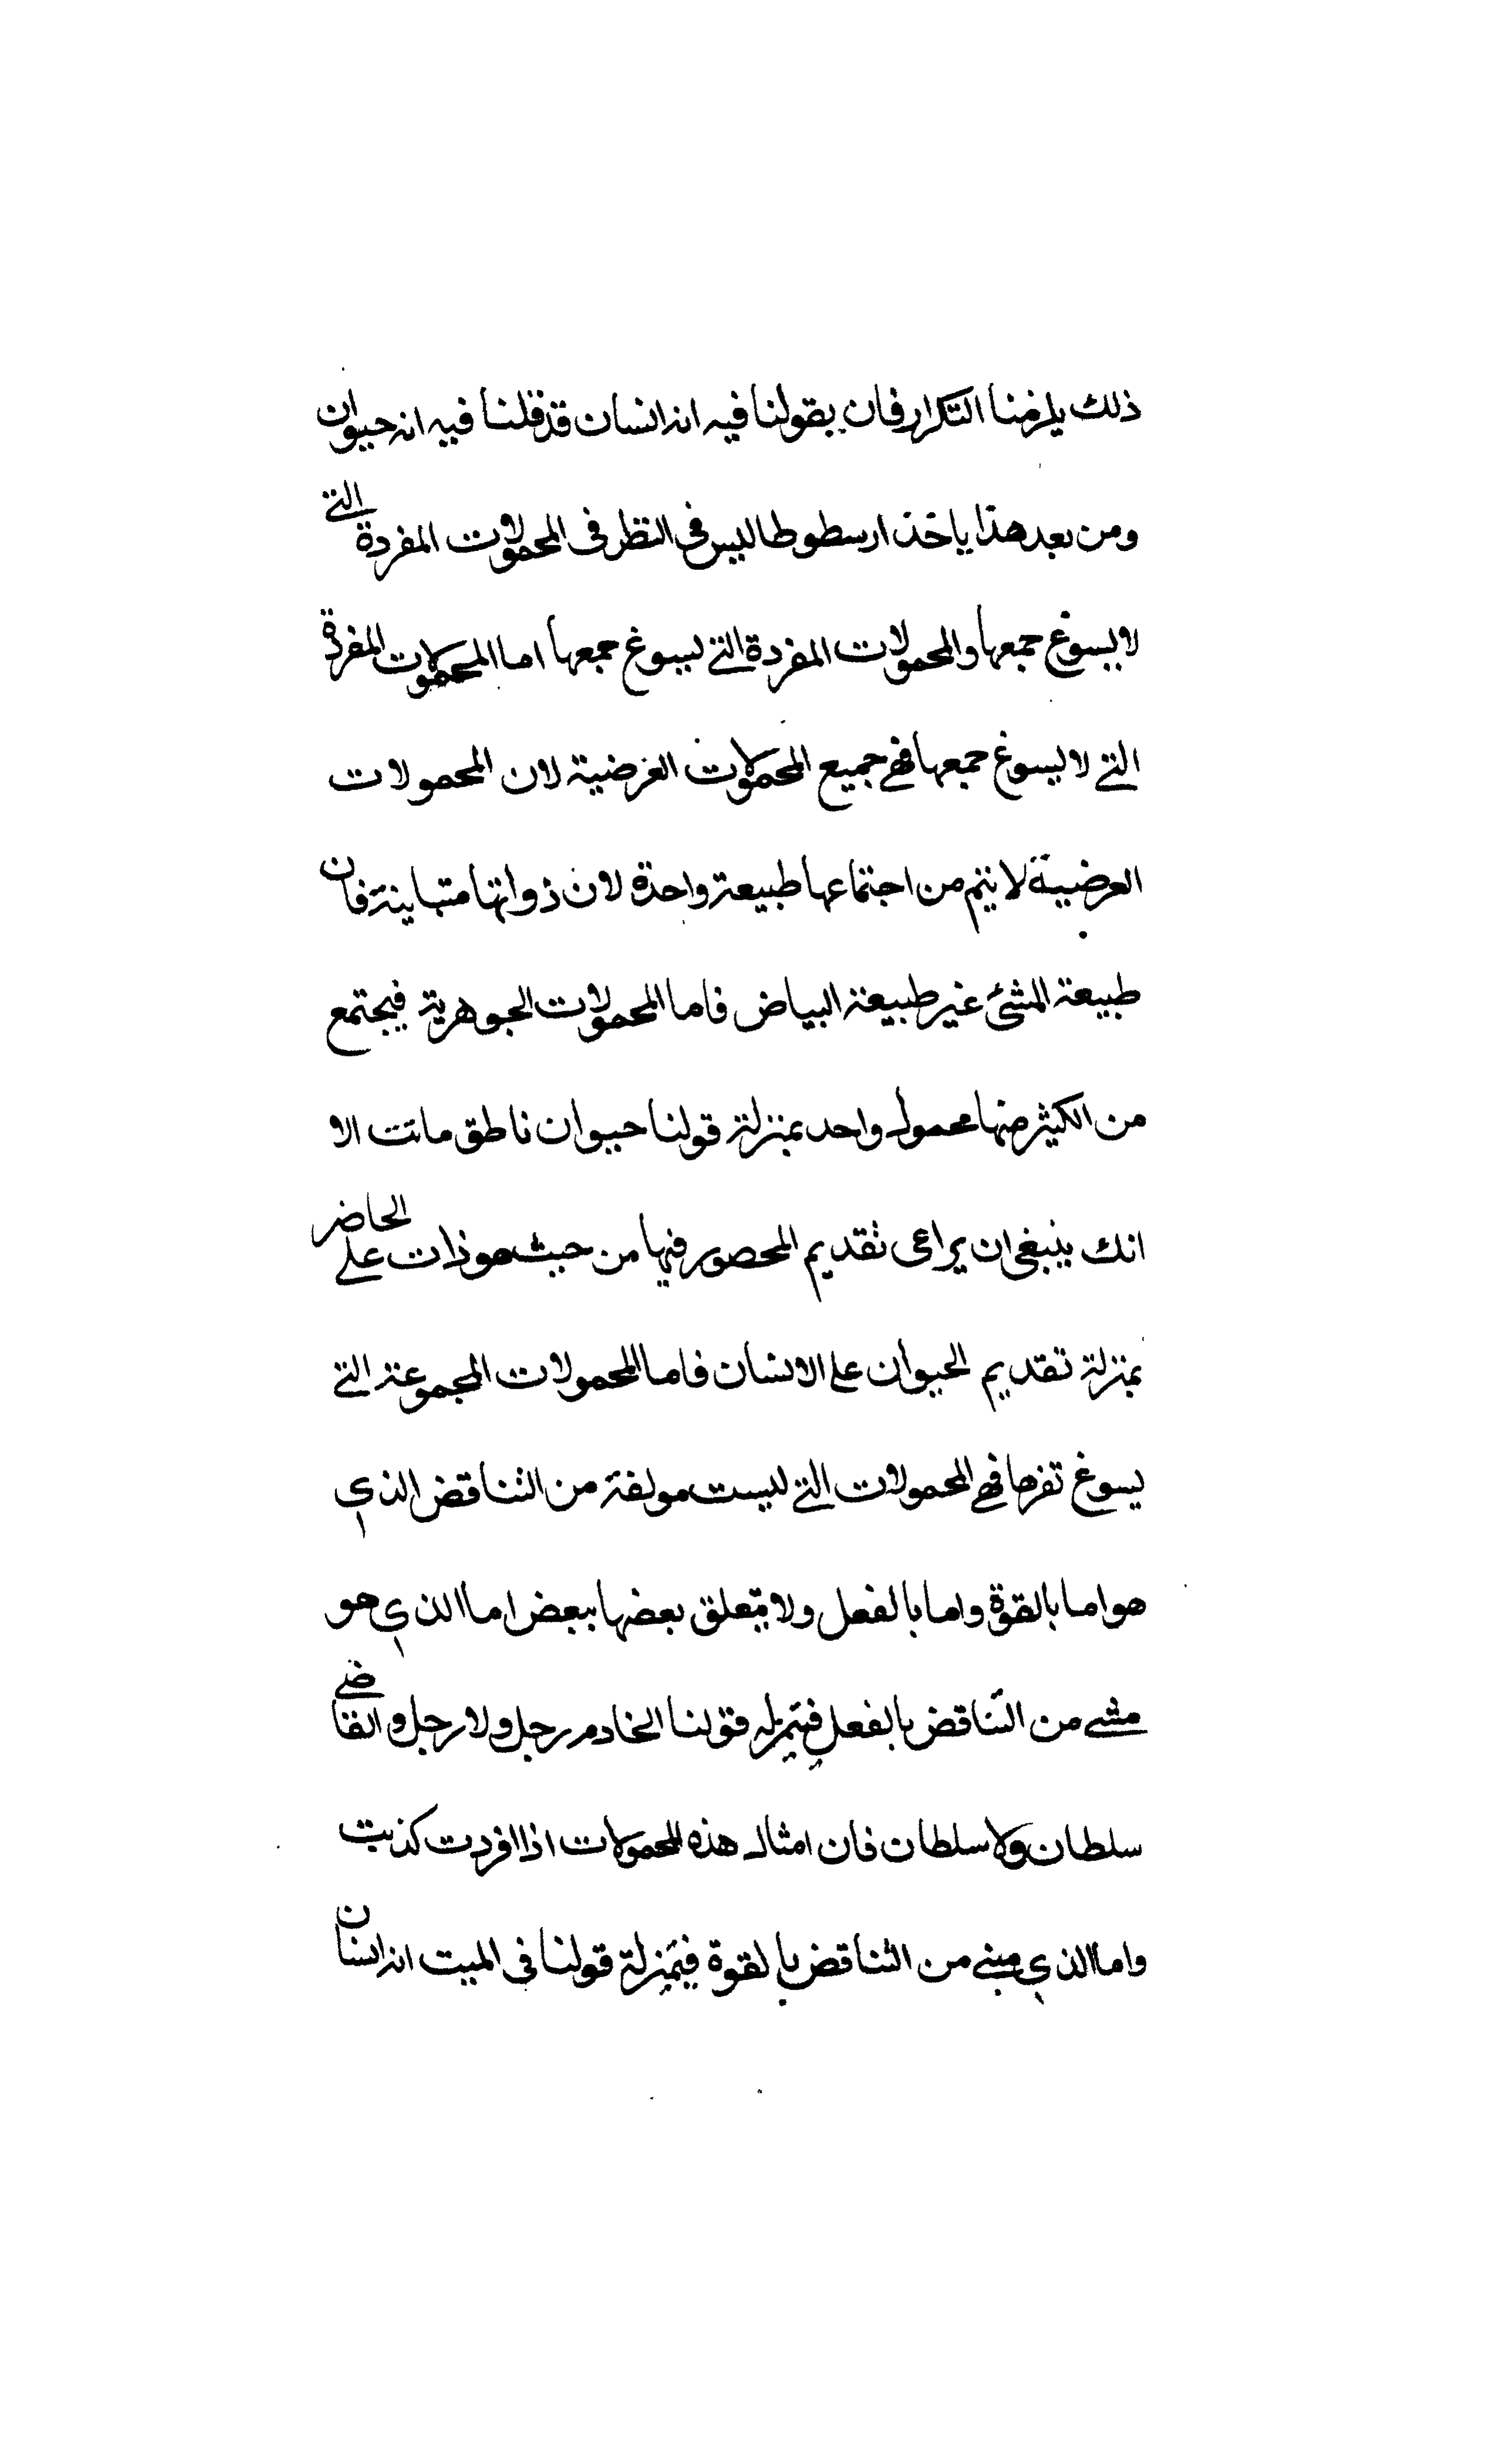 ذلك يلزمنا التكرار فان بقولنا فيه انه انسان قد قلنا فيه انه حيوان
ومن بعد هذا ياخذ ارسطوطاليس فى النظر فى المحمولات المفردة التى
لا يسوغ جمعها والمحمولات المفردة التى يسوغ جمعها اما المحمولات المفردة
التى لا يسوغ جمعها فهى جميع المحمولات العرضية لان المحمولات
العرضية لا يتم من اجتماعها طبيعة واحدة لان ذواتها متباينة فان
طبيعة المشئ غير طبيعة البياض فاما المحمولات الجوهرية فيجتمع
من الكثير منها محمول واحد بمنزلة قولنا حيوان ناطق مائت الا
انك ينبغى ان يراعى تقديم المحصور فيها من حيث هو ذات على الحاضر
بمنزلة تقديم الحيوان على الانسان فاما المحمولات المجموعة التى
يسوغ تفرها فهى المحمولات التى ليست مولفة من التناقض الذي
هو اما بالقوة واما بالفعل ولا يتعلق بعضها ببعض اما الذي هو
مشى من التناقض بالفعل فبمنزله قولنا الخادم رجل ولا رجل والقاضى
سلطان ولا سلطان فان امثال هذه المحمولات اذا افردت كذبت
واما الذي مبنى من التناقض بالقوة فبمنزلة قولنا فى الميت انه انسان